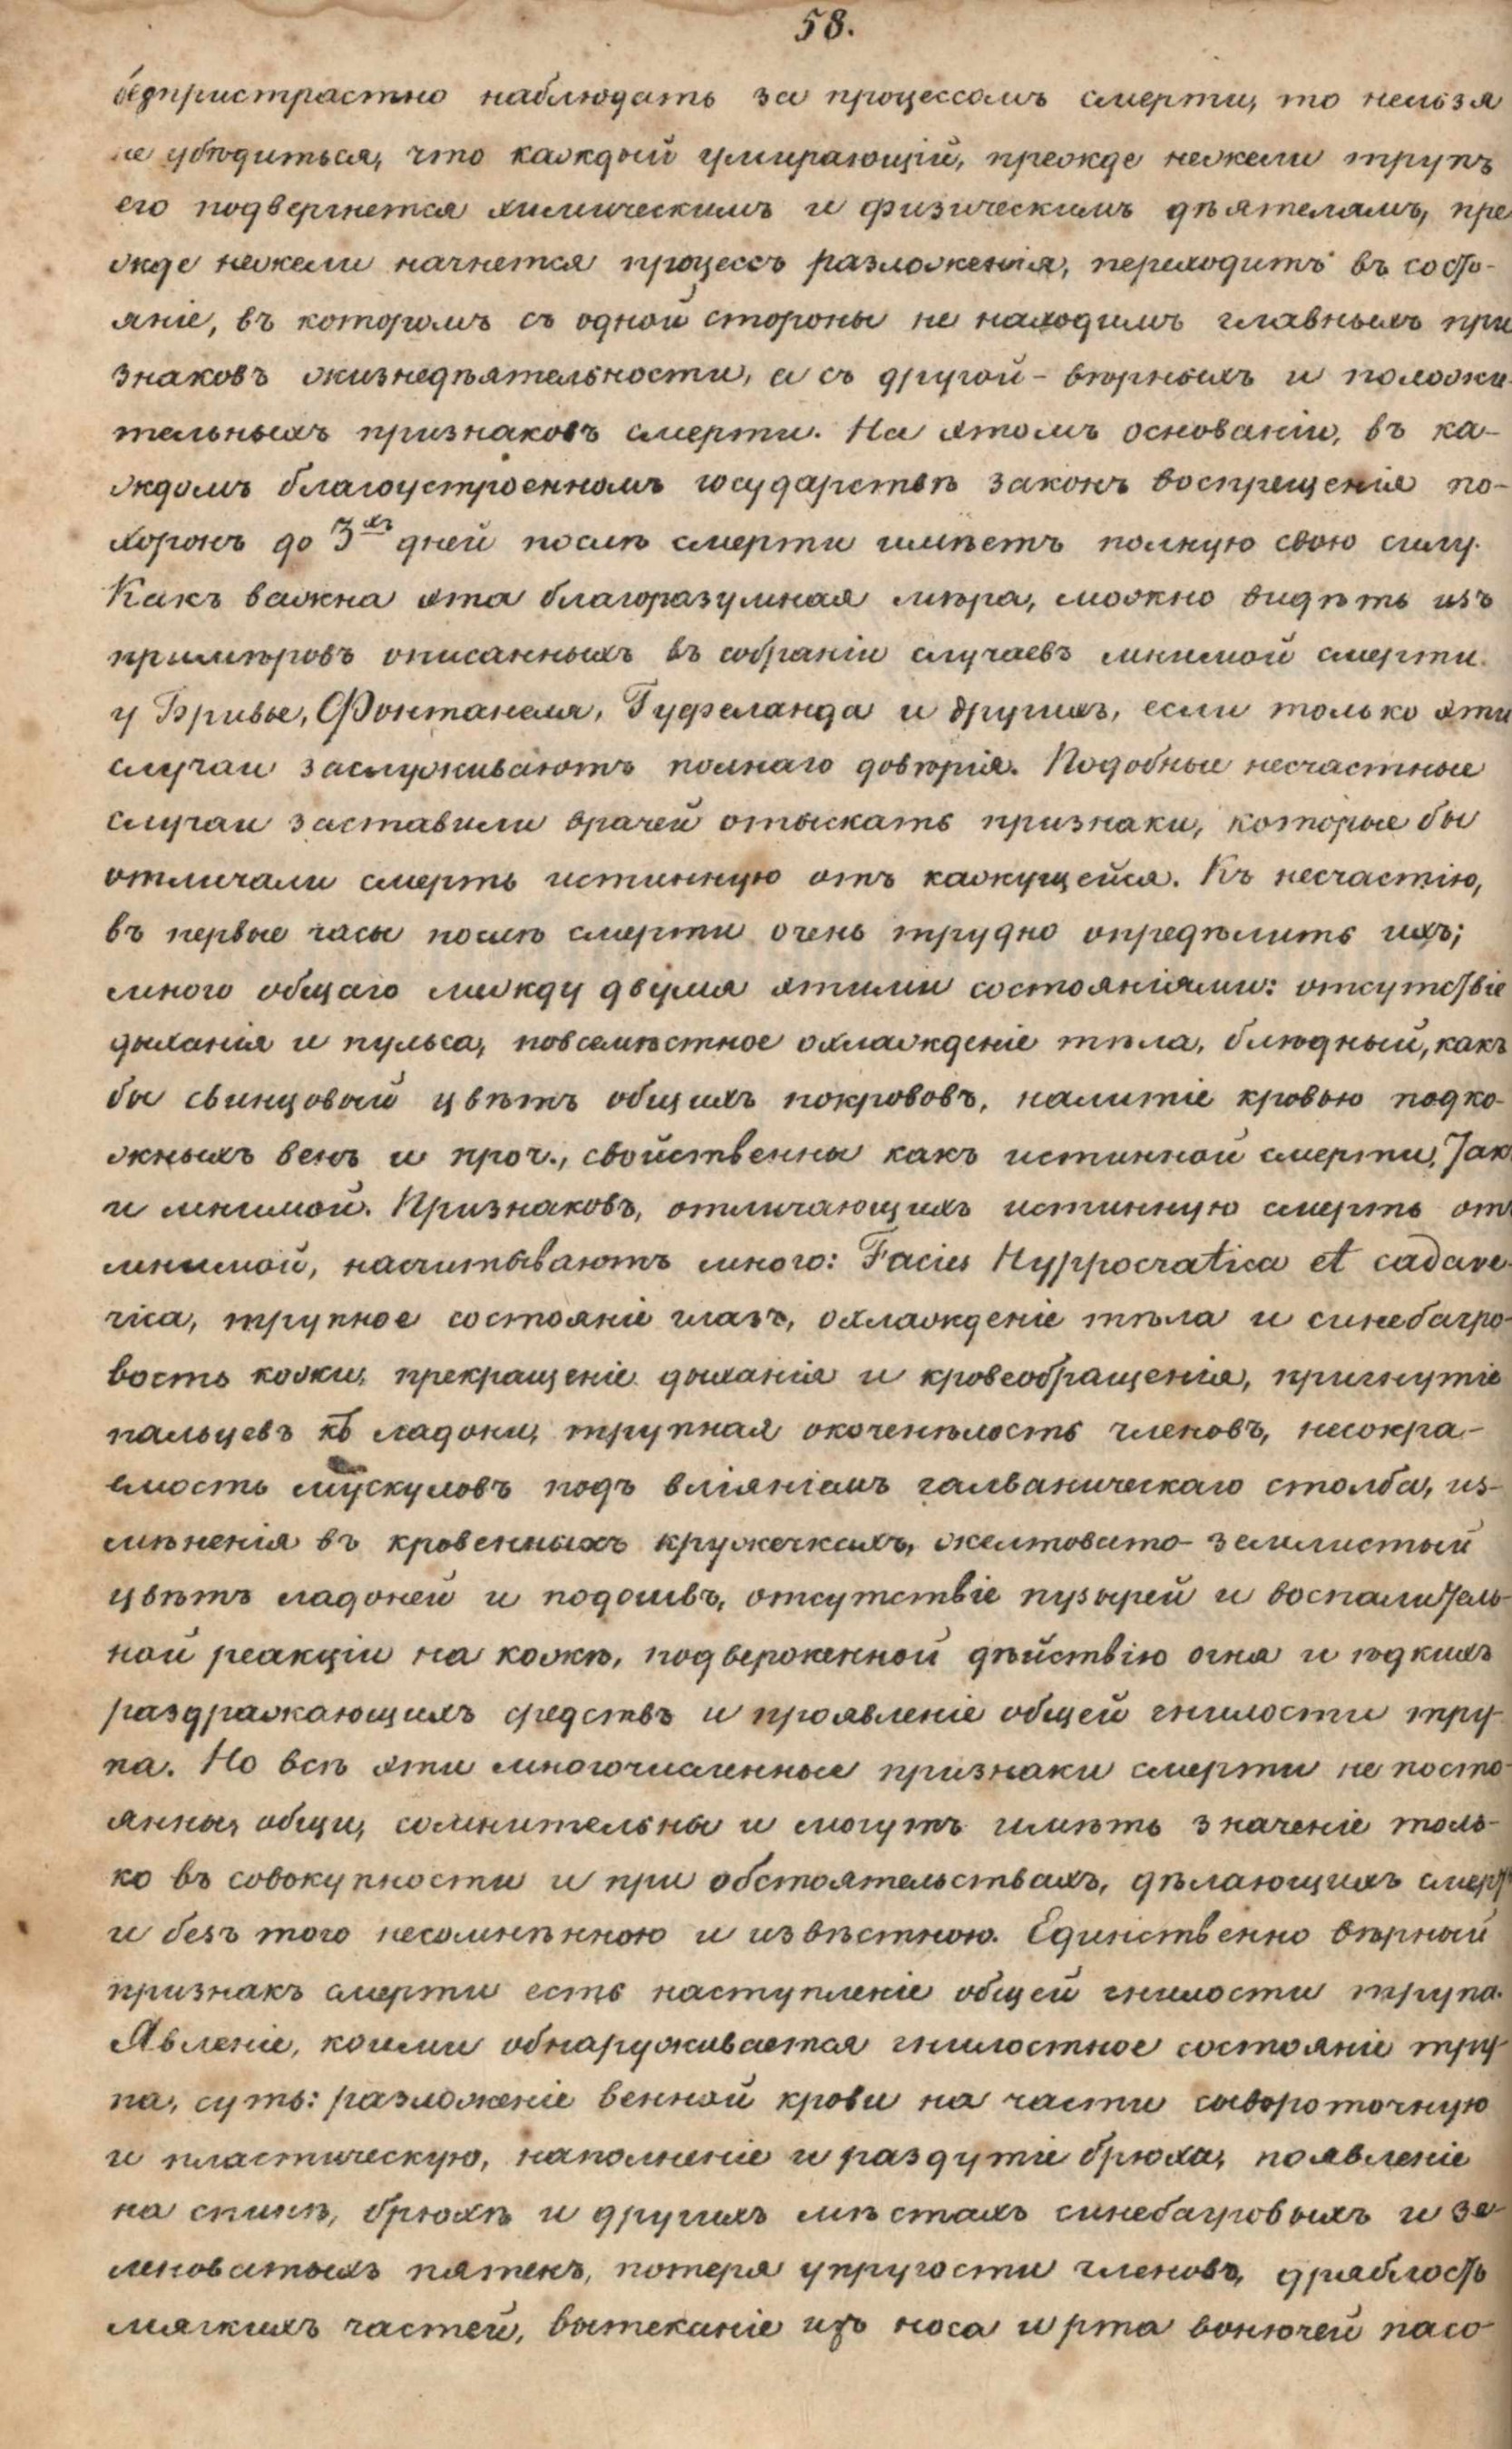 58.
безпристрастно наблюдать за процессомъ смерти, то нельзя
не убѣдиться, что каждый умирающій, прежде нежели трупъ
его подвергнется химическимъ и физическимъ дѣятелямъ, пре
жде нежели начнется процессъ разложенія, переходитъ въ состо-
яніе, въ которомъ съ одной стороны не находимъ главныхъ при
знаковъ жизнедѣятельности, а съ другой - вѣрныхъ и положи
тельныхъ признаковъ смерти. На этомъ основаніи, въ ка-
ждомъ благоустроенномъ государствѣ законъ воспрещенія по-
хоронъ до 3хъ дней послѣ смерти имѣетъ полную свою силу.
Какъ важна эта благоразумная мѣра, можно видѣть изъ
примѣровъ описанныхъ въ собраніи случаевъ мнимой смерти.
у Бривье, Фонтанеля, Гуфеланда и другихъ, если только эти
случаи заслуживаютъ полнаго довѣрія. Подобные несчастные
случаи заставили врачей отыскать признаки, которые бы
отличали смерть истинную отъ кажущейся. Къ несчастію,
въ первые часы послѣ смерти очень трудно опредѣлить ихъ;
много общаго между двумя этими состояніями: отсутствіе
дыханія и пульса, повсемѣстное охлажденіе тѣла, блѣдный, какъ
бы свинцовый цвѣтъ общихъ покрововъ, налитіе кровью подко-
жныхъ венъ и проч., свойственны какъ истинной смерти, так
и мнимой. Признаковъ, отличающихъ истинную смерть от
мнимой, насчитываютъ много: Facies Hyppocratica et cadave-
rica, трупное состояніе глазъ, охлажденіе тѣла и синебагро-
вость кожи, прекращеніе дыханія и кровеобращенія, пригнутіе
пальцевъ къ ладони, трупная окоченѣлость членовъ, несокра-
емость мускуловъ подъ вліяніемъ галваническаго столба, из-
мѣненія въ кровенныхъ кружечкахъ, желтовато-землистый
цвѣтъ ладоней и подошвъ, отсутствіе пузырей и воспалитель-
ной реакціи на кожѣ, подверженной дѣйствію огня и ѣдкихъ
раздражающихъ средствъ и проявленіе общей гнилости тру-
па. Но всѣ эти многочисленные признаки смерти не посто-
янны, общи, сомнительны и могутъ имѣть значеніе толь-
ко въ совокупности и при обстоятельствахъ, дѣлающихъ смерт
и безъ того несомнѣнною и извѣстною. Единственно вѣрный
признакъ смерти есть наступленіе общей гнилости трупа.
Явленіе, коими обнаруживается гнилостное состояніе тру-
па, суть: разложеніе венной крови на части сывороточную
и пластическую, наполненіе и раздутіе брюха, появленіе
на спинѣ, брюхѣ и другихъ мѣстахъ синебагровыхъ и зе-
леноватыхъ пятенъ, потеря упругости членовъ, дряблость
мягкихъ частей, вытеканіе изъ носа и рта вонючей пасо-